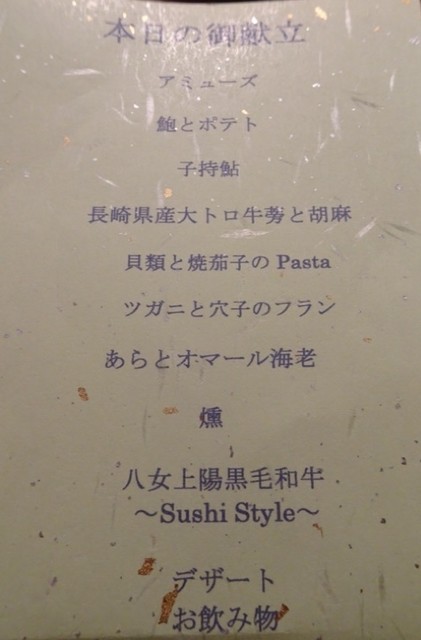 本日の御献立
アミューズ
鮑とポテト
子持鮎
長崎県産大トロ牛蒡と胡麻
貝類と焼茄子の Pasta
ツガニと穴子のフラン
あらとオマール海老
燻
八女上陽黒毛和牛
～Sushi Style～
デザート
お飲み物